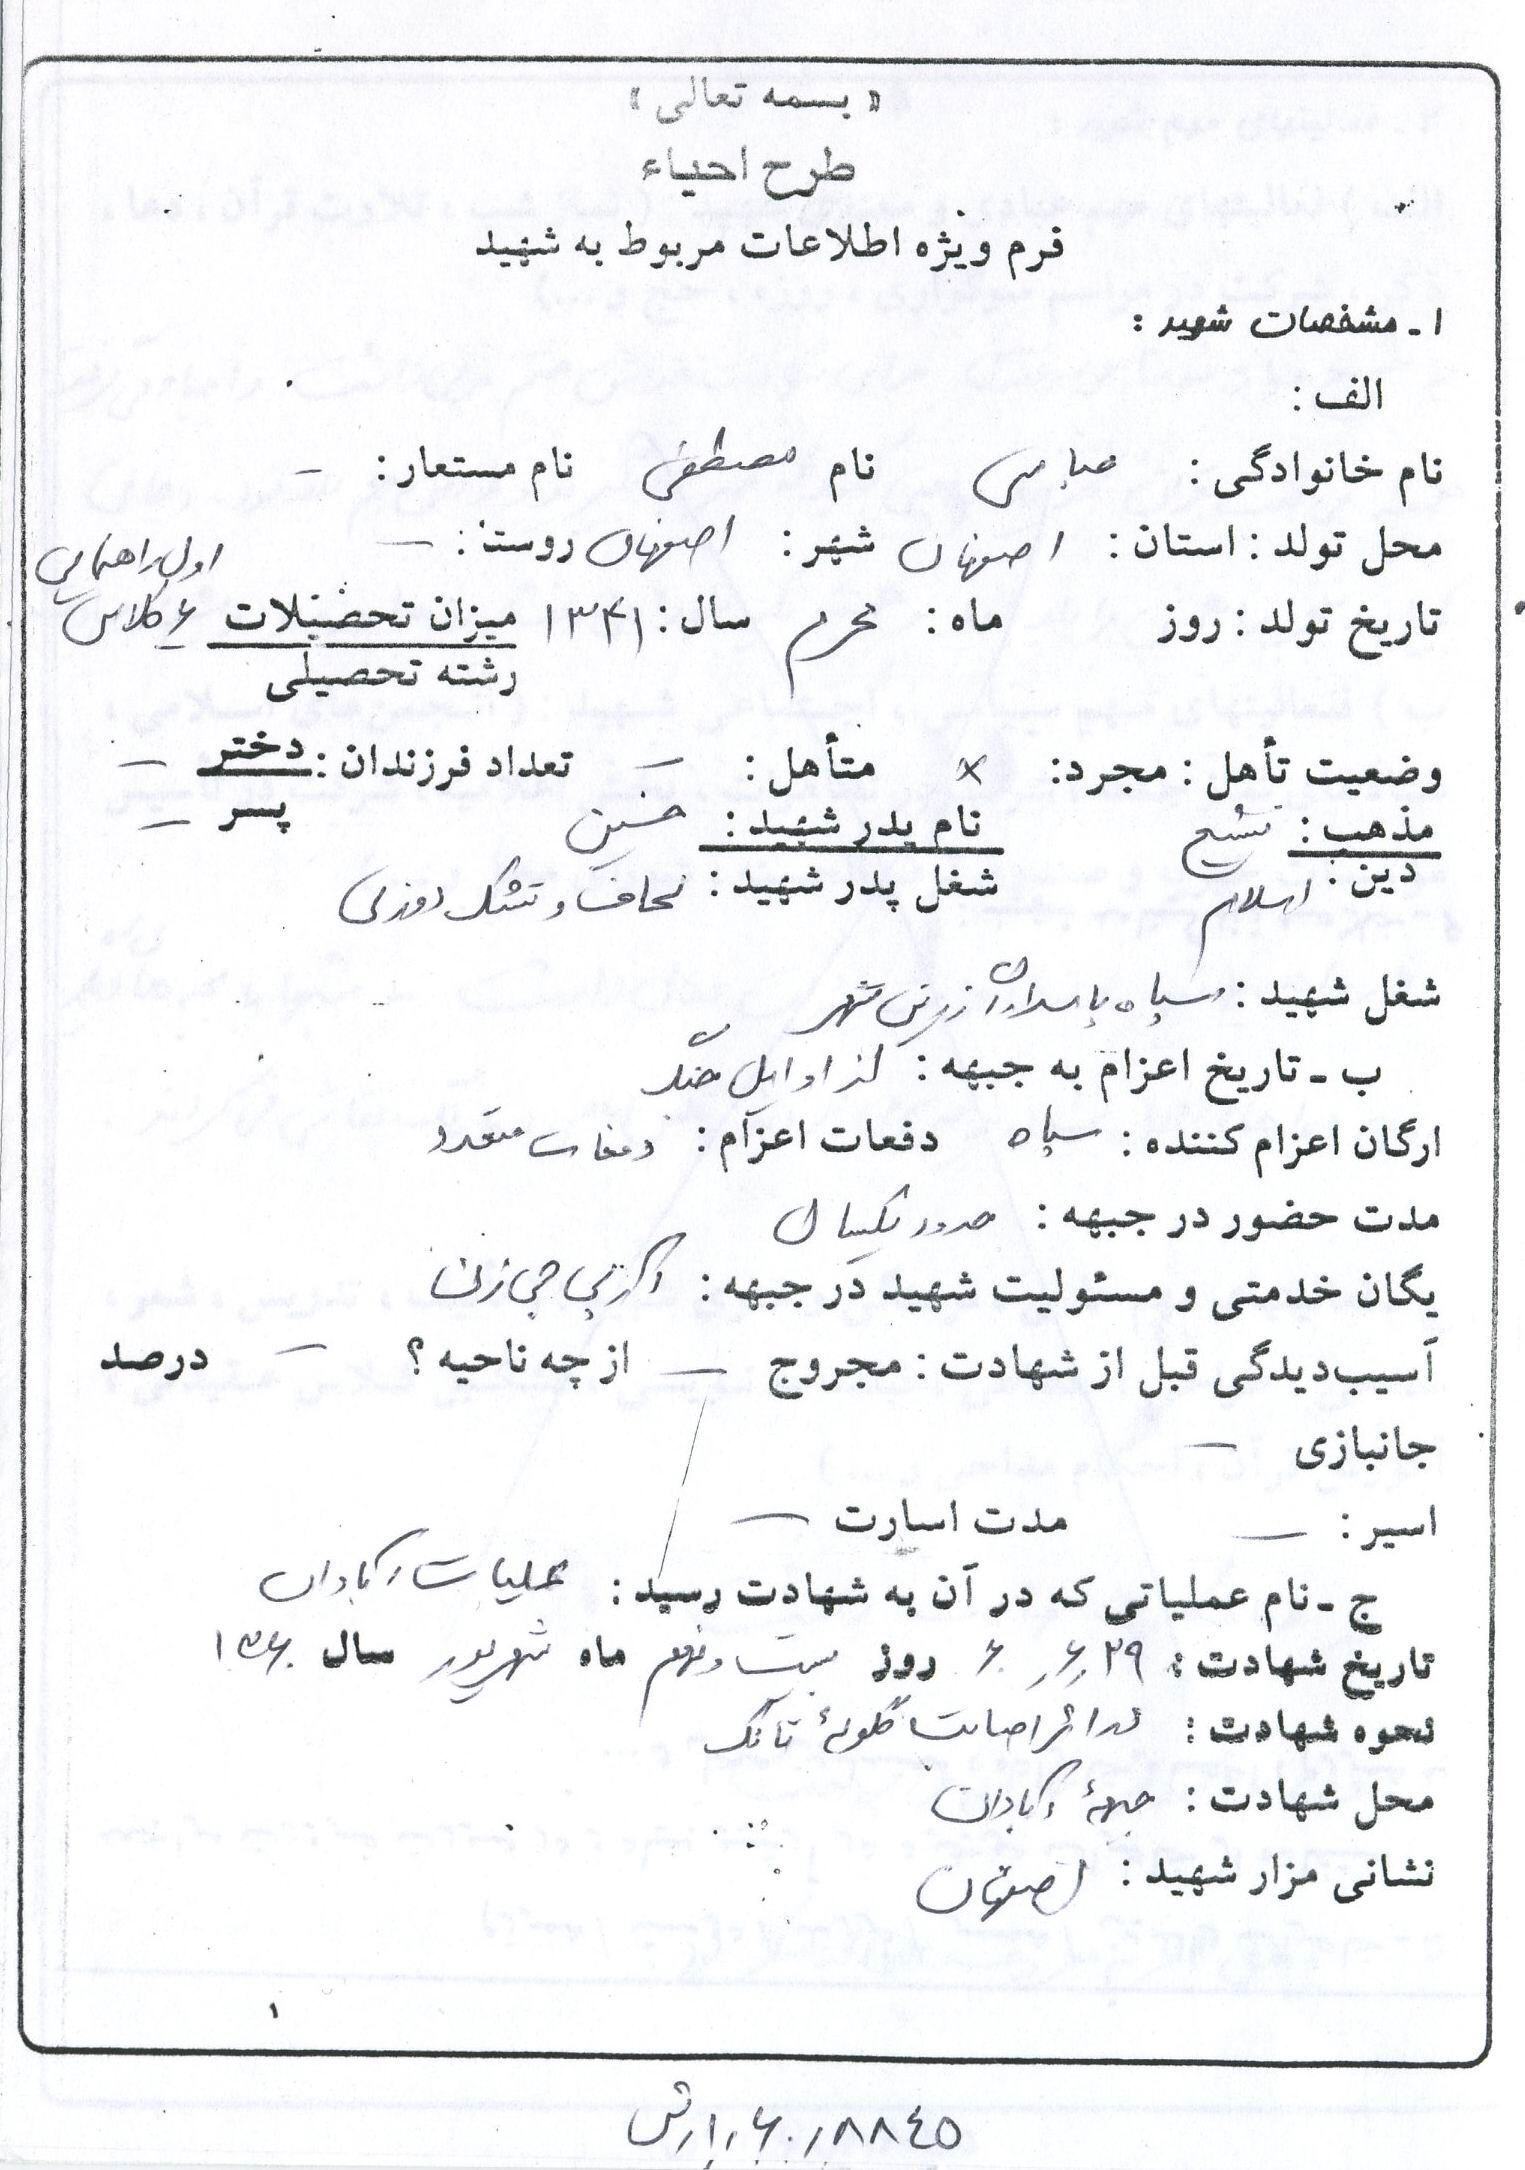 « بسمه تعالی »
طرح احیاء
فرم ویژه اطلاعات مربوط به شهید
۱ ـ مشخصات شهید :
الف :
نام خانوادگی : عباسی نام مصطفی نام مستعار : —
محل تولد : استان : اصفهان شهر : اصفهان روستا : —
اول راهنمایی
تاریخ تولد : روز ماه : محرم سال : ۱۳۴۱ میزان تحصیلات ۶ کلاس
رشته تحصیلی
وضعیت تأهل : مجرد : × متأهل : — تعداد فرزندان : دختر —
پسر —
مذهب : تشیع نام پدر شهید : حسین
دین : اسلام شغل پدر شهید : لحاف و تشک دوزی
شغل شهید : سپاه پاسداران زرین شهر
ب ـ تاریخ اعزام به جبهه : از اوایل جنگ
ارگان اعزام کننده : سپاه دفعات اعزام : دفعات متعدد
مدت حضور در جبهه : حدود یکسال
یگان خدمتی و مسئولیت شهید در جبهه : آرپی جی زن
آسیب‌دیدگی قبل از شهادت : مجروح — از چه ناحیه ؟ — درصد
جانبازی —
اسیر : — مدت اسارت —
ج ـ نام عملیاتی که در آن به شهادت رسید : عملیات آبادان
تاریخ شهادت : ۲۹ر۶ر۶۰ روز بیست و نهم ماه شهریور سال ۱۳۶۰
نحوه شهادت : در اثر اصابت گلولهٔ تانک
محل شهادت : جبههٔ آبادان
نشانی مزار شهید : اصفهان
۱